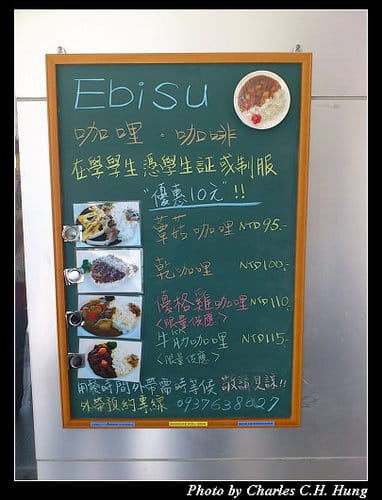 Ebisu
咖哩。咖啡
在學學生憑學生証或制服
"優惠10元"!!
蕈菇咖哩 NTD95.-
乾咖哩 NTD100.-
優格雞咖哩 NTD110.-
<限量供應>
牛肋咖哩 NTD115.-
<限量供應>
用餐時間外帶需時等候 敬請見諒!!
外帶預約專線 0937638027
Photo by Charles C.H. Hung